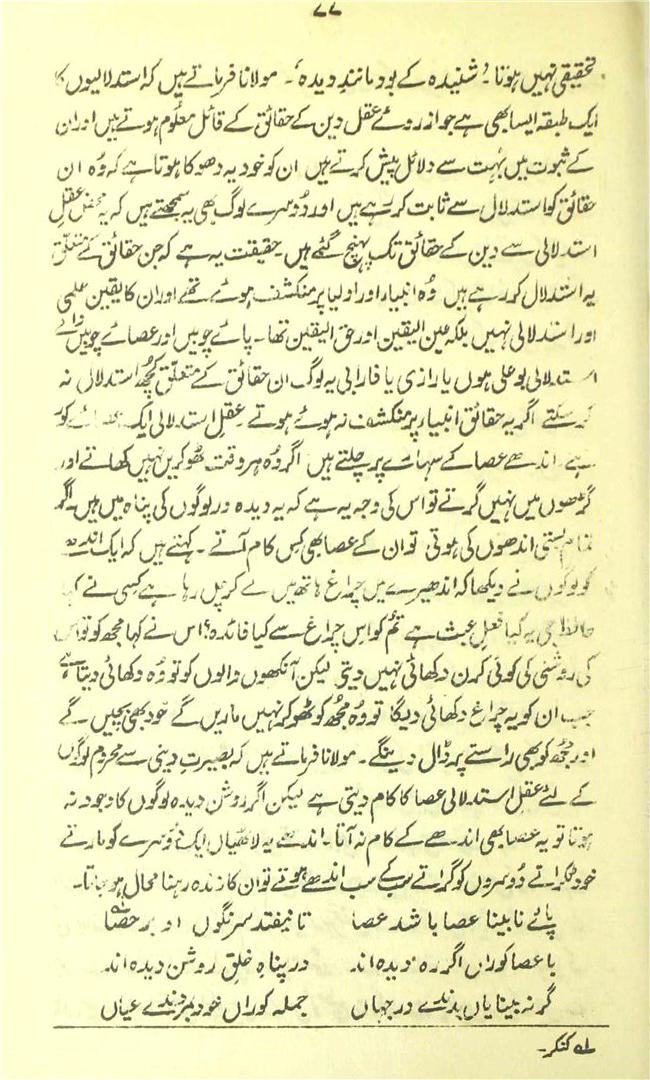 ۷۷
تحقیقی نہیں ہوتا۔ ’شنیدہ کے بود مانندِ دیدہ‘۔ مولانا فرماتے ہیں کہ استدلالیوں کا
ایک طبقہ ایسا بھی ہے جو ازروئے عقل دین کے حقائق کے قائل معلوم ہوتے ہیں اور ان
کے ثبوت میں بہُت سے دلائل پیش کرتے ہیں ان کو خود یہ دھوکا ہوتا ہے کہ وُہ ان
حقائق کو استدلال سے ثابت کر رہے ہیں اور دُوسرے لوگ بھی یہ سمجھتے ہیں کہ یہ محض عقلِ
استدلالی سے دین کے حقائق تک پہنچ گئے ہیں۔ حقیقت یہ ہے کہ جن حقائق کے متعلق
یہ استدلال کر رہے ہیں وُہ انبیاء اور اولیا پر منکشف ہوئے تھے اور ان کا یقین علمی
اور استدلالی نہیں بلکہ عین الیقین اور حق الیقین تھا۔ پائے چوبیں اور عصائے چوبیں والے
استدلالی بو علی ہوں یا رازی یا فارابی یہ لوگ ان حقائق کے متعلق کچھُ استدلال نہ
کر سکتے اگر یہ حقائق انبیاء پر منکشف نہ ہوئے ہوتے۔ عقلِ استدلالی ایک عصائے کور
ہے۔ اندھے عصا کے سہارے پر چلتے ہیں اگر وُہ ہر وقت ٹھوکریں نہیں کھاتے اور
گڑھوں میں نہیں گرتے تو اس کی وجہ یہ ہے کہ یہ دیدہ ور لوگوں کی پناہ میں ہیں۔ اگر
تمام بستی اندھوں کی ہوتی تو ان کے عصا بھی کس کام آتے۔ کہتے ہیں کہ ایک اندھے
کو لوگوں نے دیکھا کہ اندھیرے میں چراغ ہاتھ میں لے کر چل رہا ہے کسی نے کہا
حافظ جی یہ کیا فعلِ عبث ہے تُم کو اس چراغ سے کیا فائدہ؟ اس نے کہا مجھ کو تو اس
کی روشنی کی کوئی کرن دکھائی نہیں دیتی لیکن آنکھوں والوں کو تو وُہ دکھائی دیتا ہے
جب ان کو یہ چراغ دکھائی دیگا تو وُہ مُجھ کو ٹھوکر نہیں ماریں گے خود بھی بچیں گے
اور مجُھ کو بھی راستے پر ڈال دینگے۔ مولانا فرماتے ہیں کہ بصیرتِ دینی سے محروم لوگوں
کے لئے عقل استدلالی عصا کا کام دیتی ہے لیکن اگر روشن دیدہ لوگوں کا وجود نہ
ہوتا تو یہ عصا بھی اندھے کے کام نہ آتا۔ اندھے یہ لاٹھیاں ایک دُوسرے کو مارتے
خود ٹکراتے دُوسروں کو گراتے سب کے سب اندھے ہوتے تو ان کا زندہ رہنا محال ہو جاتا۔
پائے نابینا عصا باشد عصا تا نیفتد سرنگوں او بر حصا لے
با عصا کوراں اگر رہ دیدہ اند در پناہِ خلقِ روشن دیدہ اند
گر نہ بینایاں بدندے در جہاں جملہ کوراں خود بمردندے عیاں
لے کنکر۔